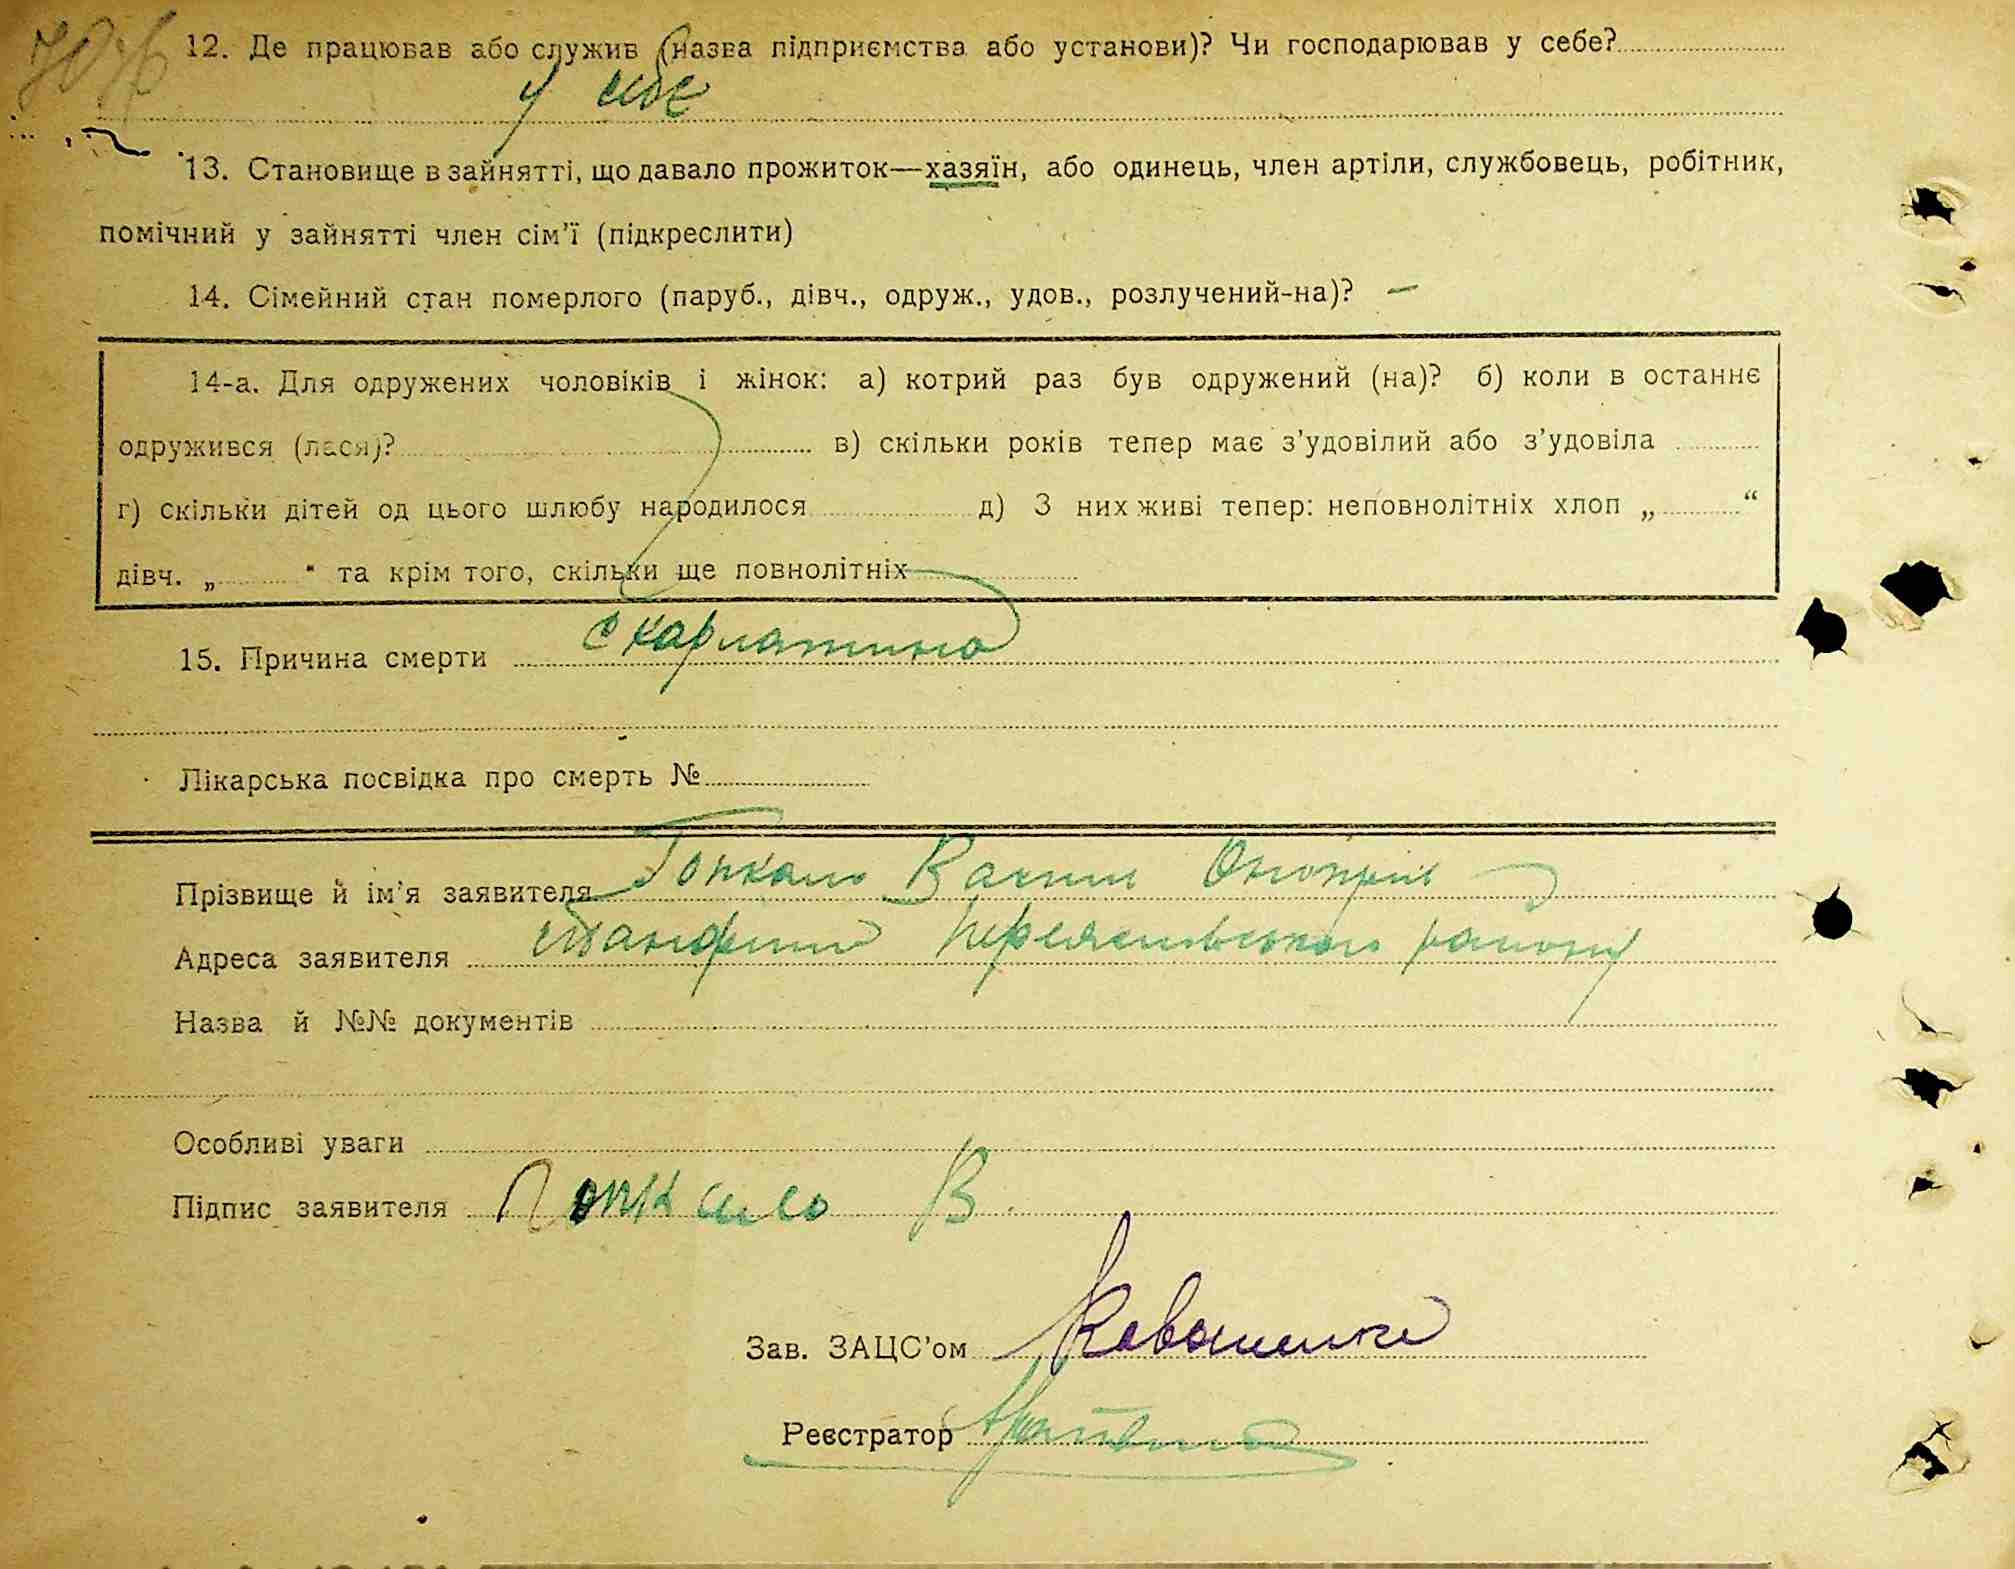 12. Де працював або служив (назва підприємства або установи)? Чи господарював у себе?
у себе
13. Становище в зайнятті, що давало прожиток—хазяїн, або одинець, член артіли, службовець, робітник,
помічний у зайнятті член сім'ї (підкреслити)
14. Сімейний стан померлого (паруб., дівч., одруж., удов., розлучений-на)? —
14-а. Для одружених чоловіків і жінок: а) котрий раз був одружений (на)? б) коли в останнє
одружився (лася)? в) скільки років тепер має з'удовілий або з'удовіла
г) скільки дітей од цього шлюбу народилося д) З них живі тепер: неповнолітніх хлоп „ “
дівч. „ “ та крім того, скільки ще повнолітніх
15. Причина смерти скарлатина
Лікарська посвідка про смерть №
Прізвище й ім'я заявителя Гопкало
Адреса заявителя Переяславського району
Назва й №№ документів
Особливі уваги
Підпис заявителя Гопкало В.
Зав. ЗАЦС'ом
Реєстратор